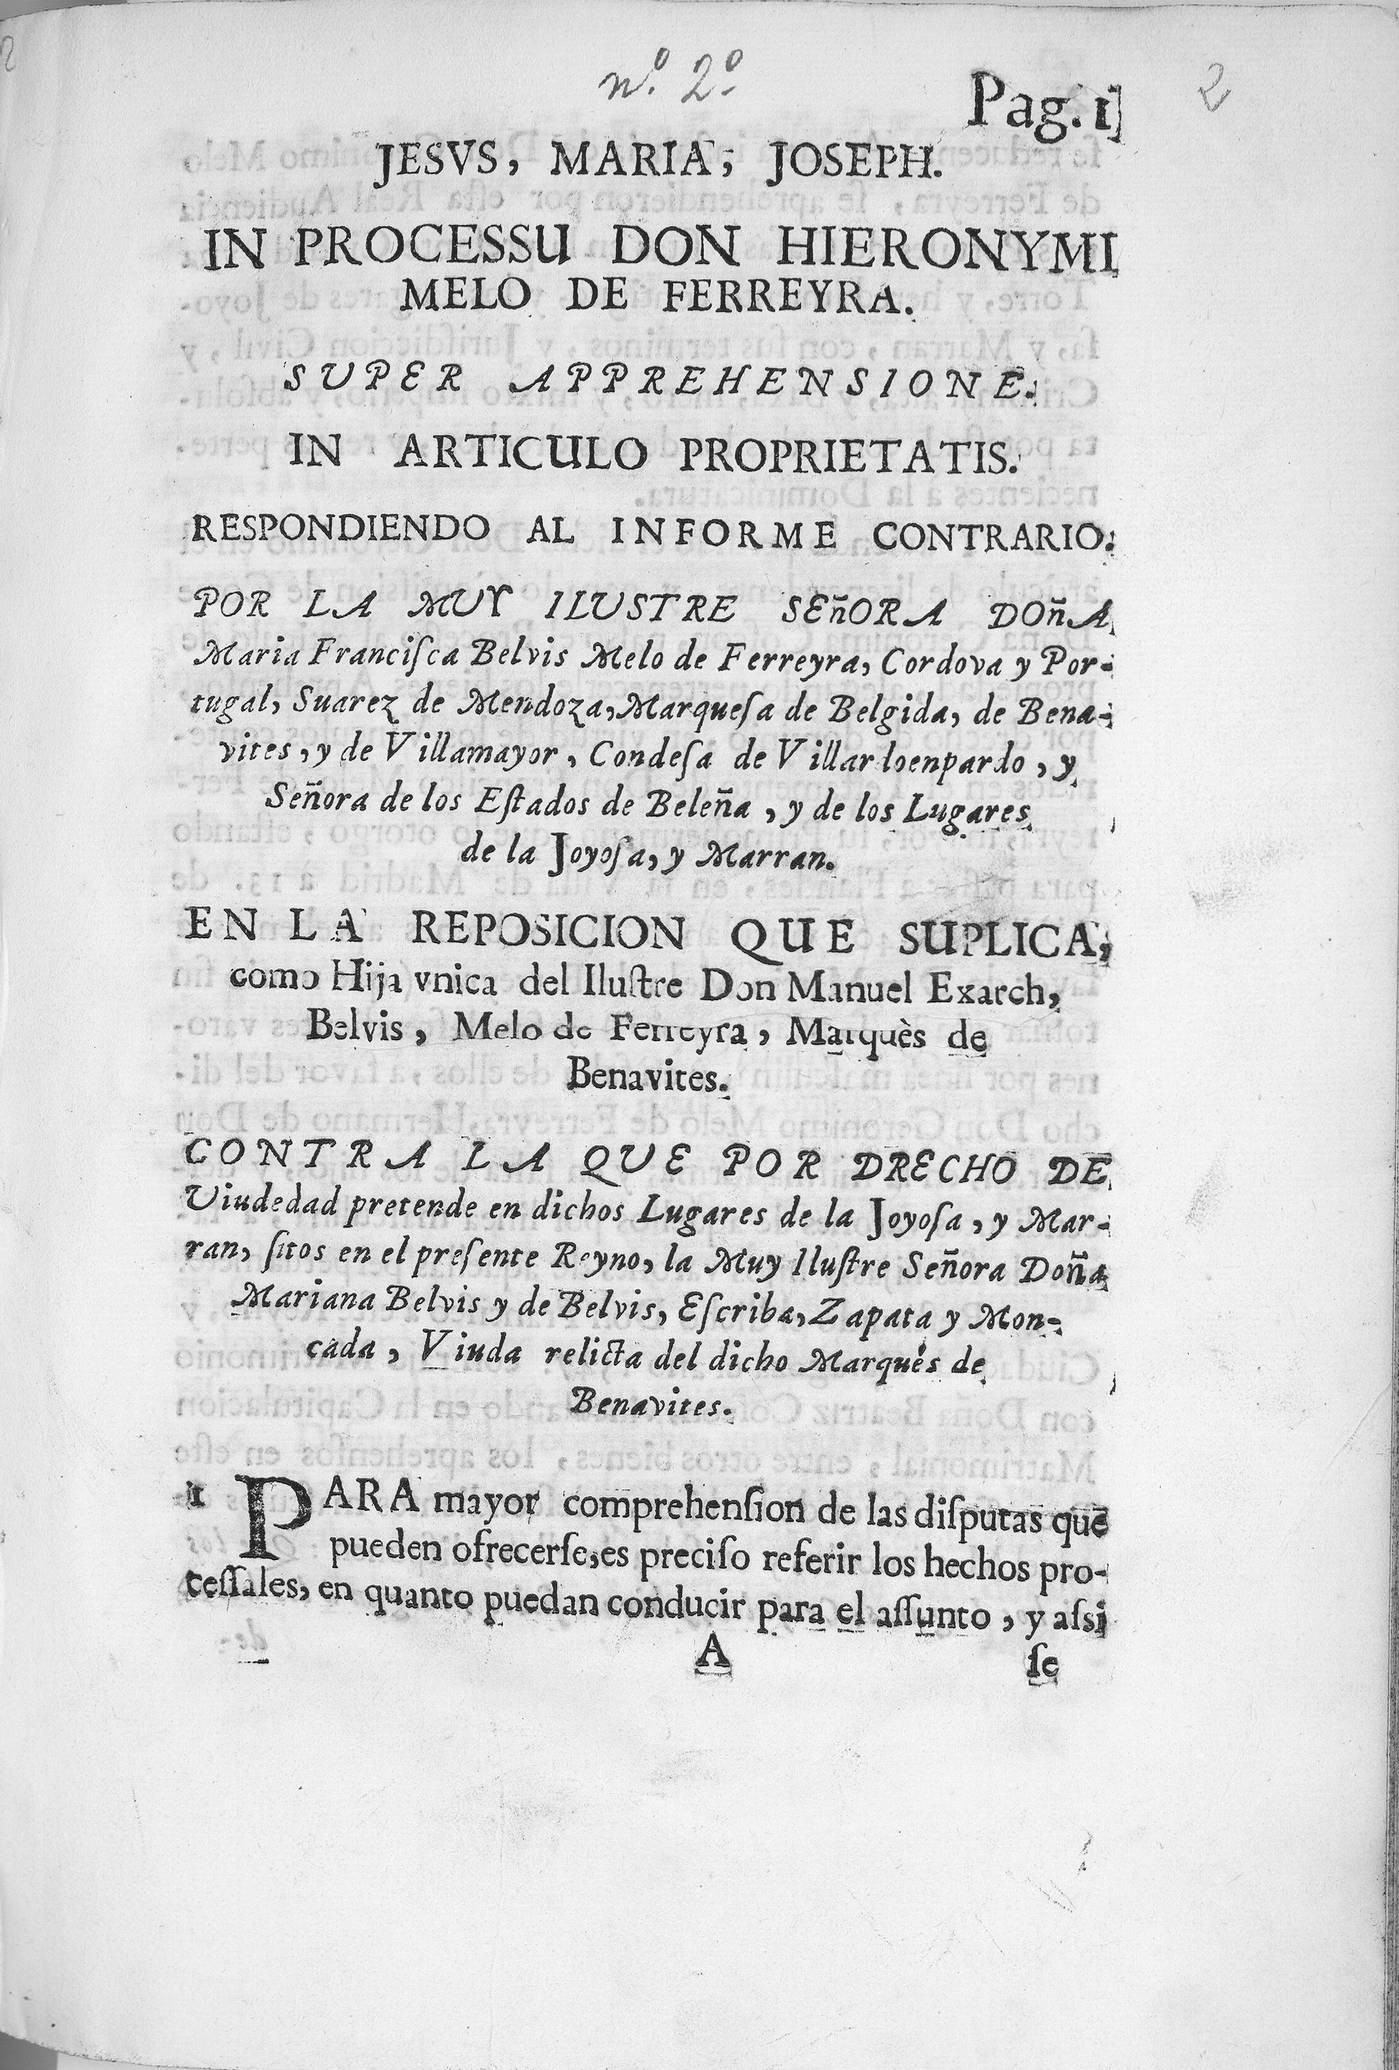 nº. 2º.
Pag. 1]
2
JESVS, MARIA, JOSEPH.
IN PROCESSU DON HIERONYMI
MELO DE FERREYRA.
SUPER APPREHENSIONE.
IN ARTICULO PROPRIETATIS.
RESPONDIENDO AL INFORME CONTRARIO.
POR LA MUY ILUSTRE SEñORA DOñA
Maria Franciſca Belvis Melo de Ferreyra, Cordova y Por-
tugal, Suarez de Mendoza, Marqueſa de Belgida, de Bena-
vites, y de Villamayor, Condeſa de Villardoenpardo, y
Señora de los Eſtados de Beleña, y de los Lugares
de la Joyoſa, y Marran.
EN LA REPOSICION QUE SUPLICA,
como Hija vnica del Iluſtre Don Manuel Exarch,
Belvis, Melo de Ferreyra, Marquès de
Benavites.
CONTRA LA QUE POR DRECHO DE
Viudedad pretende en dichos Lugares de la Joyoſa, y Mar-
ran, ſitos en el preſente Reyno, la Muy Iluſtre Señora Doña
Mariana Belvis y de Belvis, Eſcriba, Zapata y Mon-
cada, Viuda relicta del dicho Marqués de
Benavites.
1 PARA mayor comprehenſion de las diſputas que
pueden ofrecerſe, es preciſo referir los hechos pro-
ceſſales, en quanto puedan conducir para el aſſunto, y aſsi
A
ſe